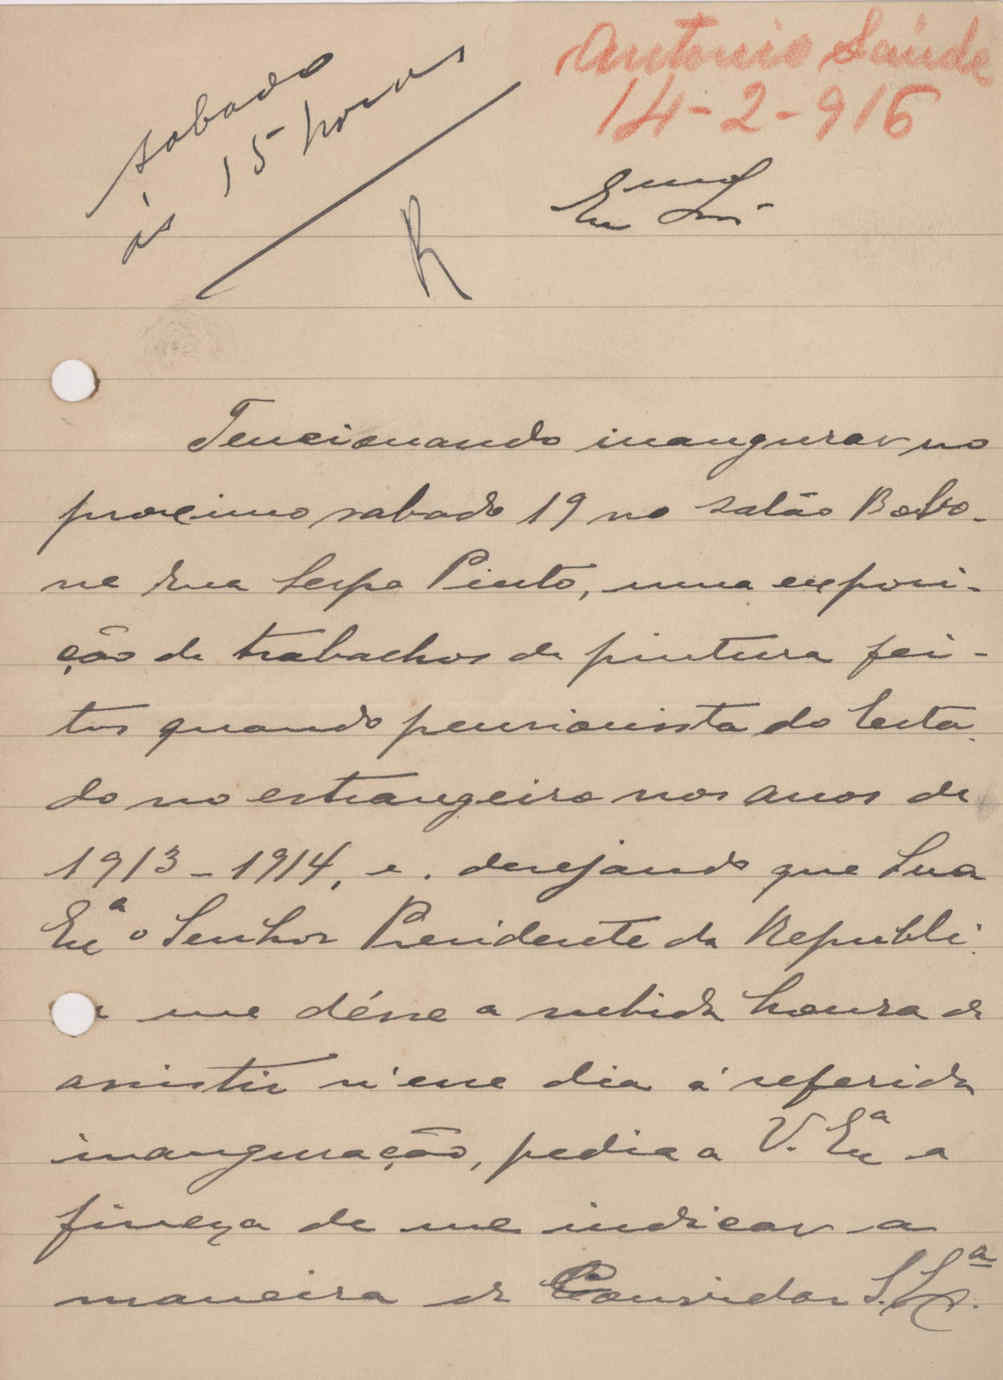 Antonio Saúde
14-2-916
sabado
ás 15 horas
R
Exmo Snr
Tencionando inaugurar no
proximo sabado 19 no salão Bobo-
ne rua Serpa Pinto, uma exposi-
ção de trabalhos de pintura fei-
tos quando pensionista do Esta-
do no estrangeiro nos anos de
1913-1914, e, desejando que Sua
Exª o Senhor Presidente da Republi-
me désse a subida honra de
assistir n'esse dia á referida
inauguração, pedia a V. Exª a
fineza de me indicar a
maneira de Convidar S.